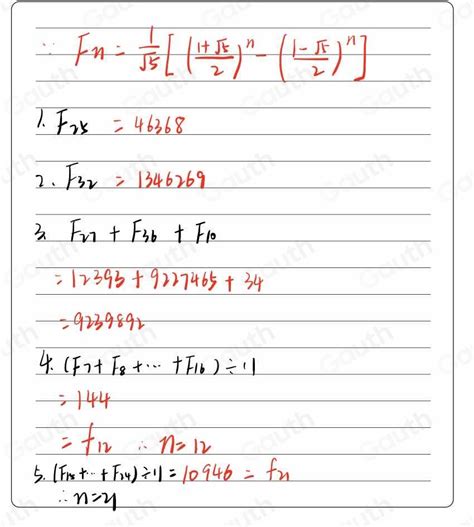 ∵ Fn = 1/√5 [ ((1+√5)/2)^n - ((1-√5)/2)^n ]
1. F25 = 46368
2. F32 = 1346269
3. F27 + F36 + F10
= 12393 + 9227465 + 34
= 9239892
4. (F7 + F8 + ⋯ + F16) ÷ 11
= 144
= f12 ∴ n = 12
5. (F15 + ⋯ + F24) ÷ 11 = 10946 = f21
∴ n = 21
Gauth